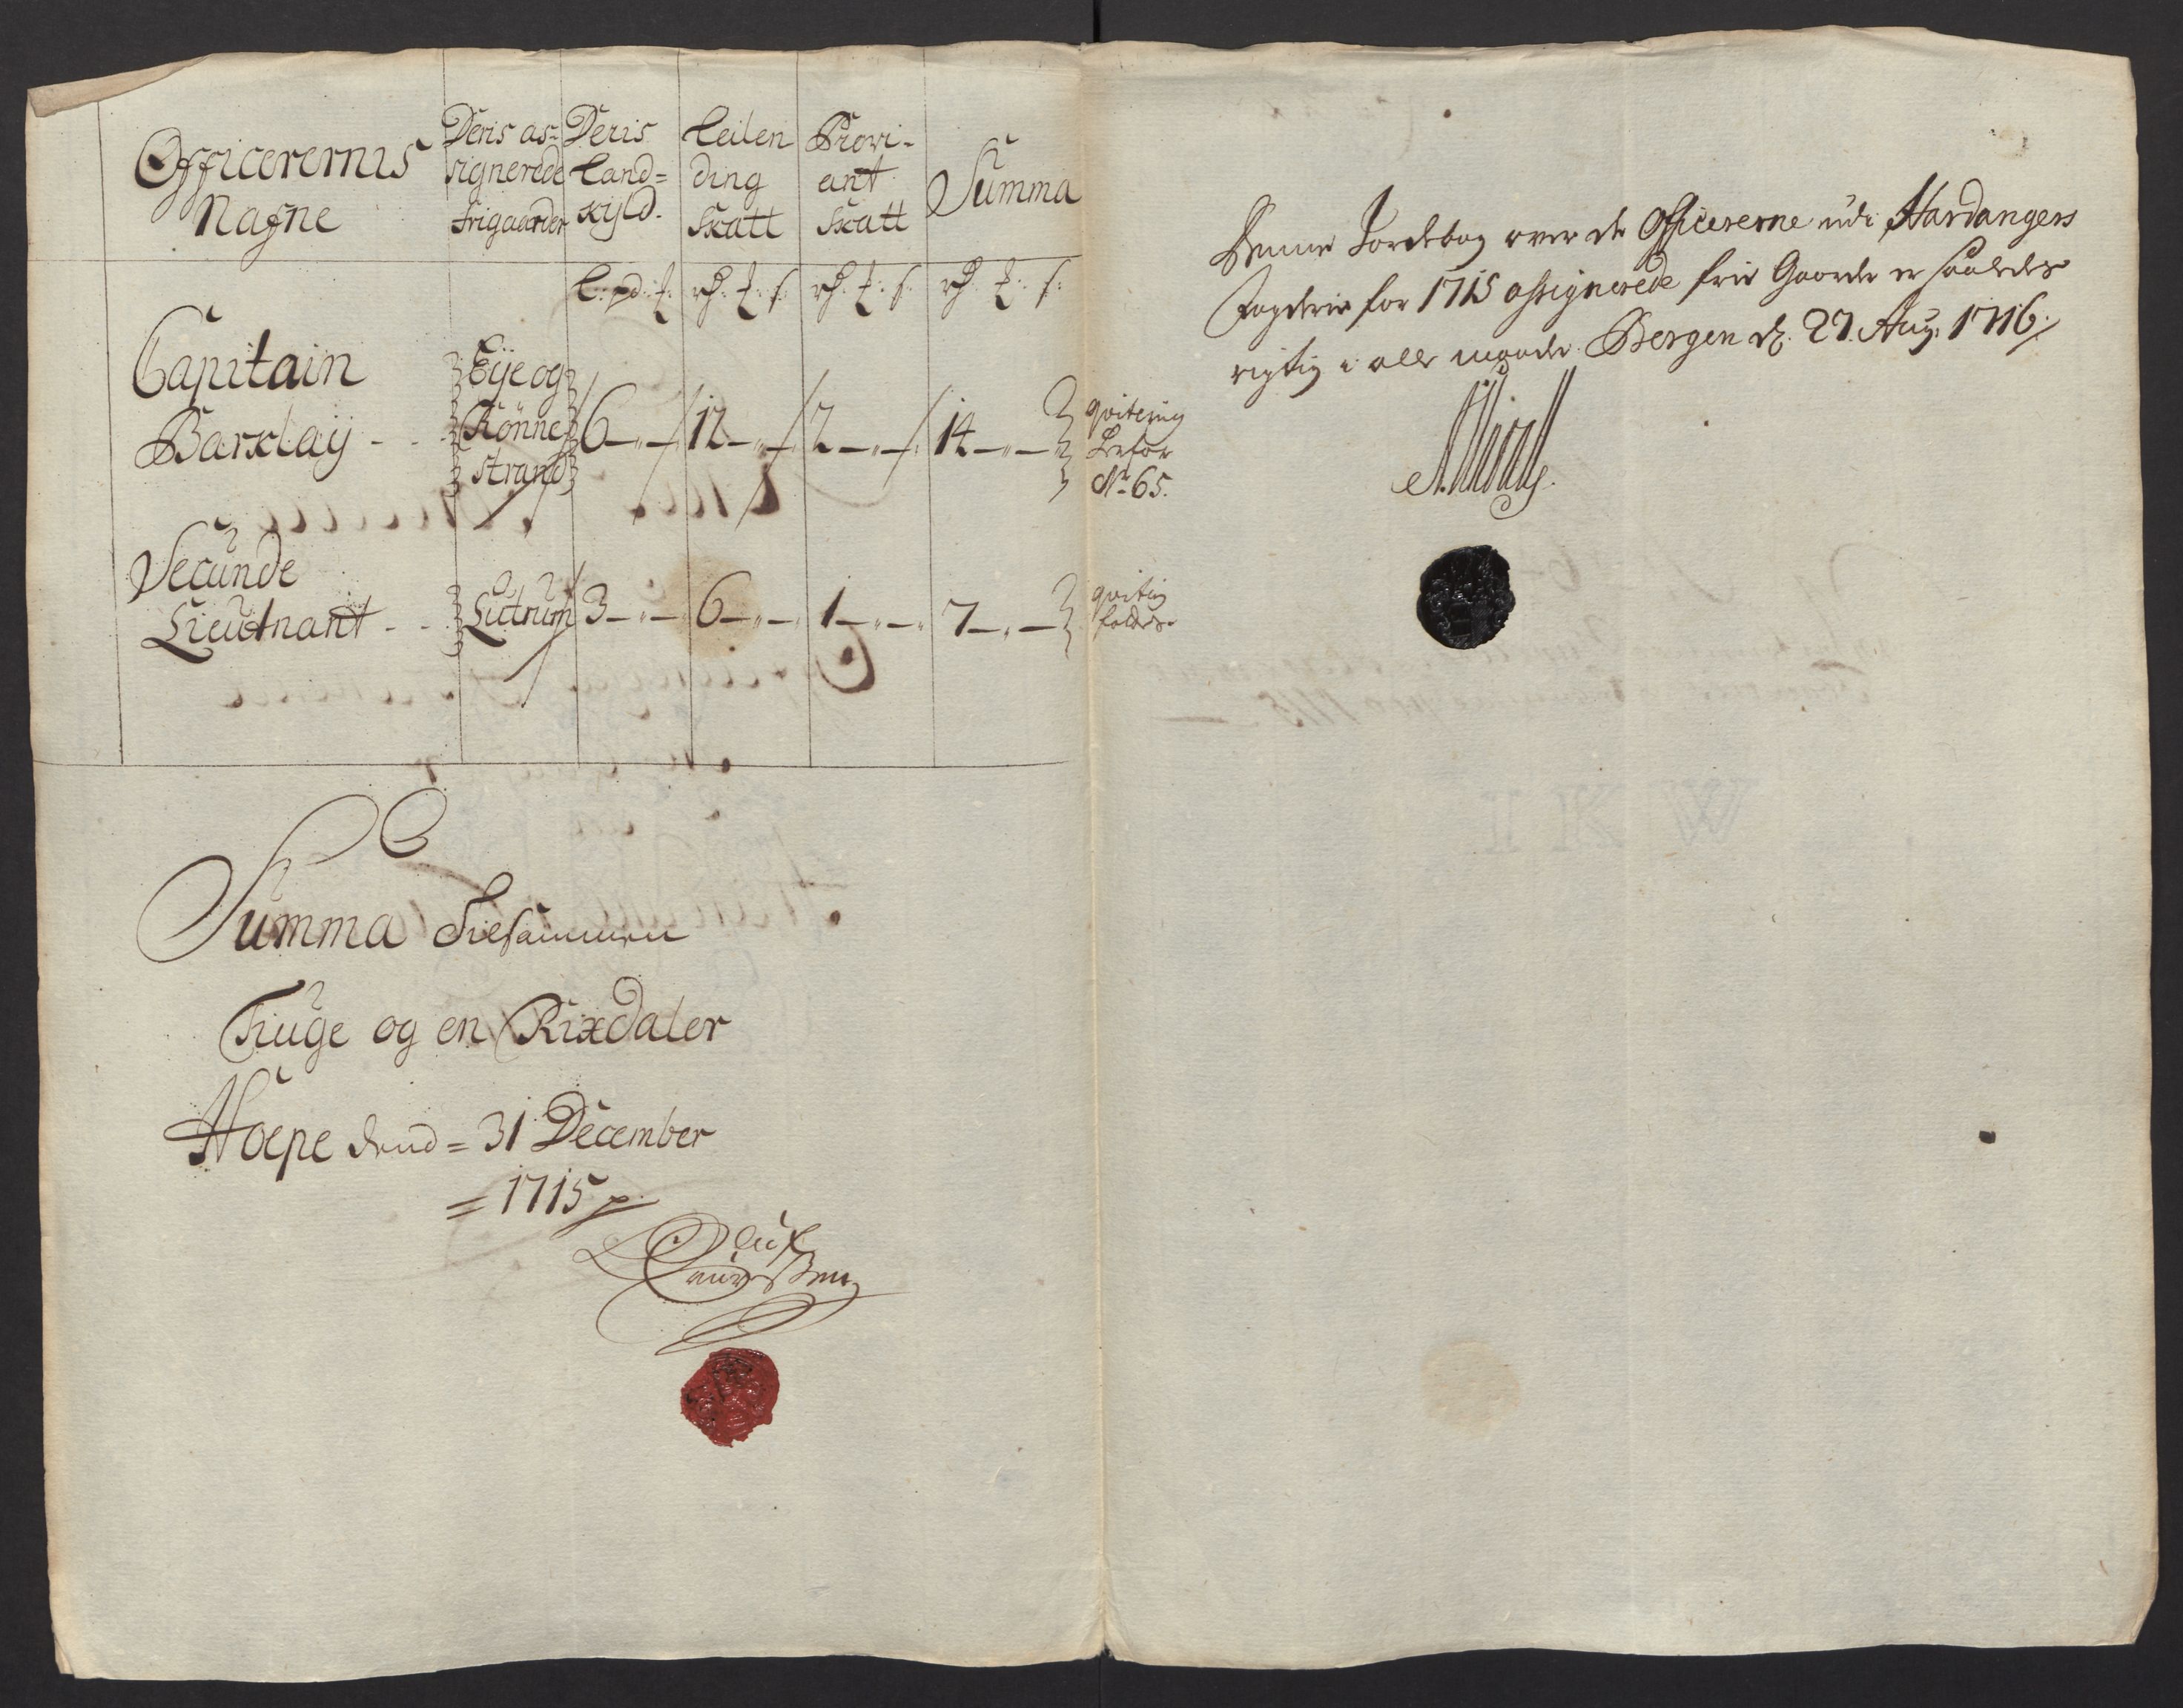 Officerernis Nafne | Deris as= signerede frigaarder | Deris Land= skyld. | Leilen ding skatt | Provi- ant skatt | Summa
L: pd: f: | rd: ʒ: s: | rd: ʒ: s: | rd: ʒ: s:
Capitain Barclay - - | Eije og Rönne strand | 6 — „ — | 12 — „ — | 2 — „ — | 14 — „ — | qvitering herfor No 65.
Secunde Lieutnant - - | Lutrum | 3 — „ — | 6 — „ — | 1 — „ — | 7 — „ — | qvitering
Summa Tilsammen
Tiuge og en Rixdaler
Hoepe dend = 31 December
= 1715
Denne Jordebog over de Officererne udi Hardangers
Fogderie for 1715 assignerede frie Gaarde er saaledes
rigtig i alle maader. Bergen d. 27. Aug: 1716.